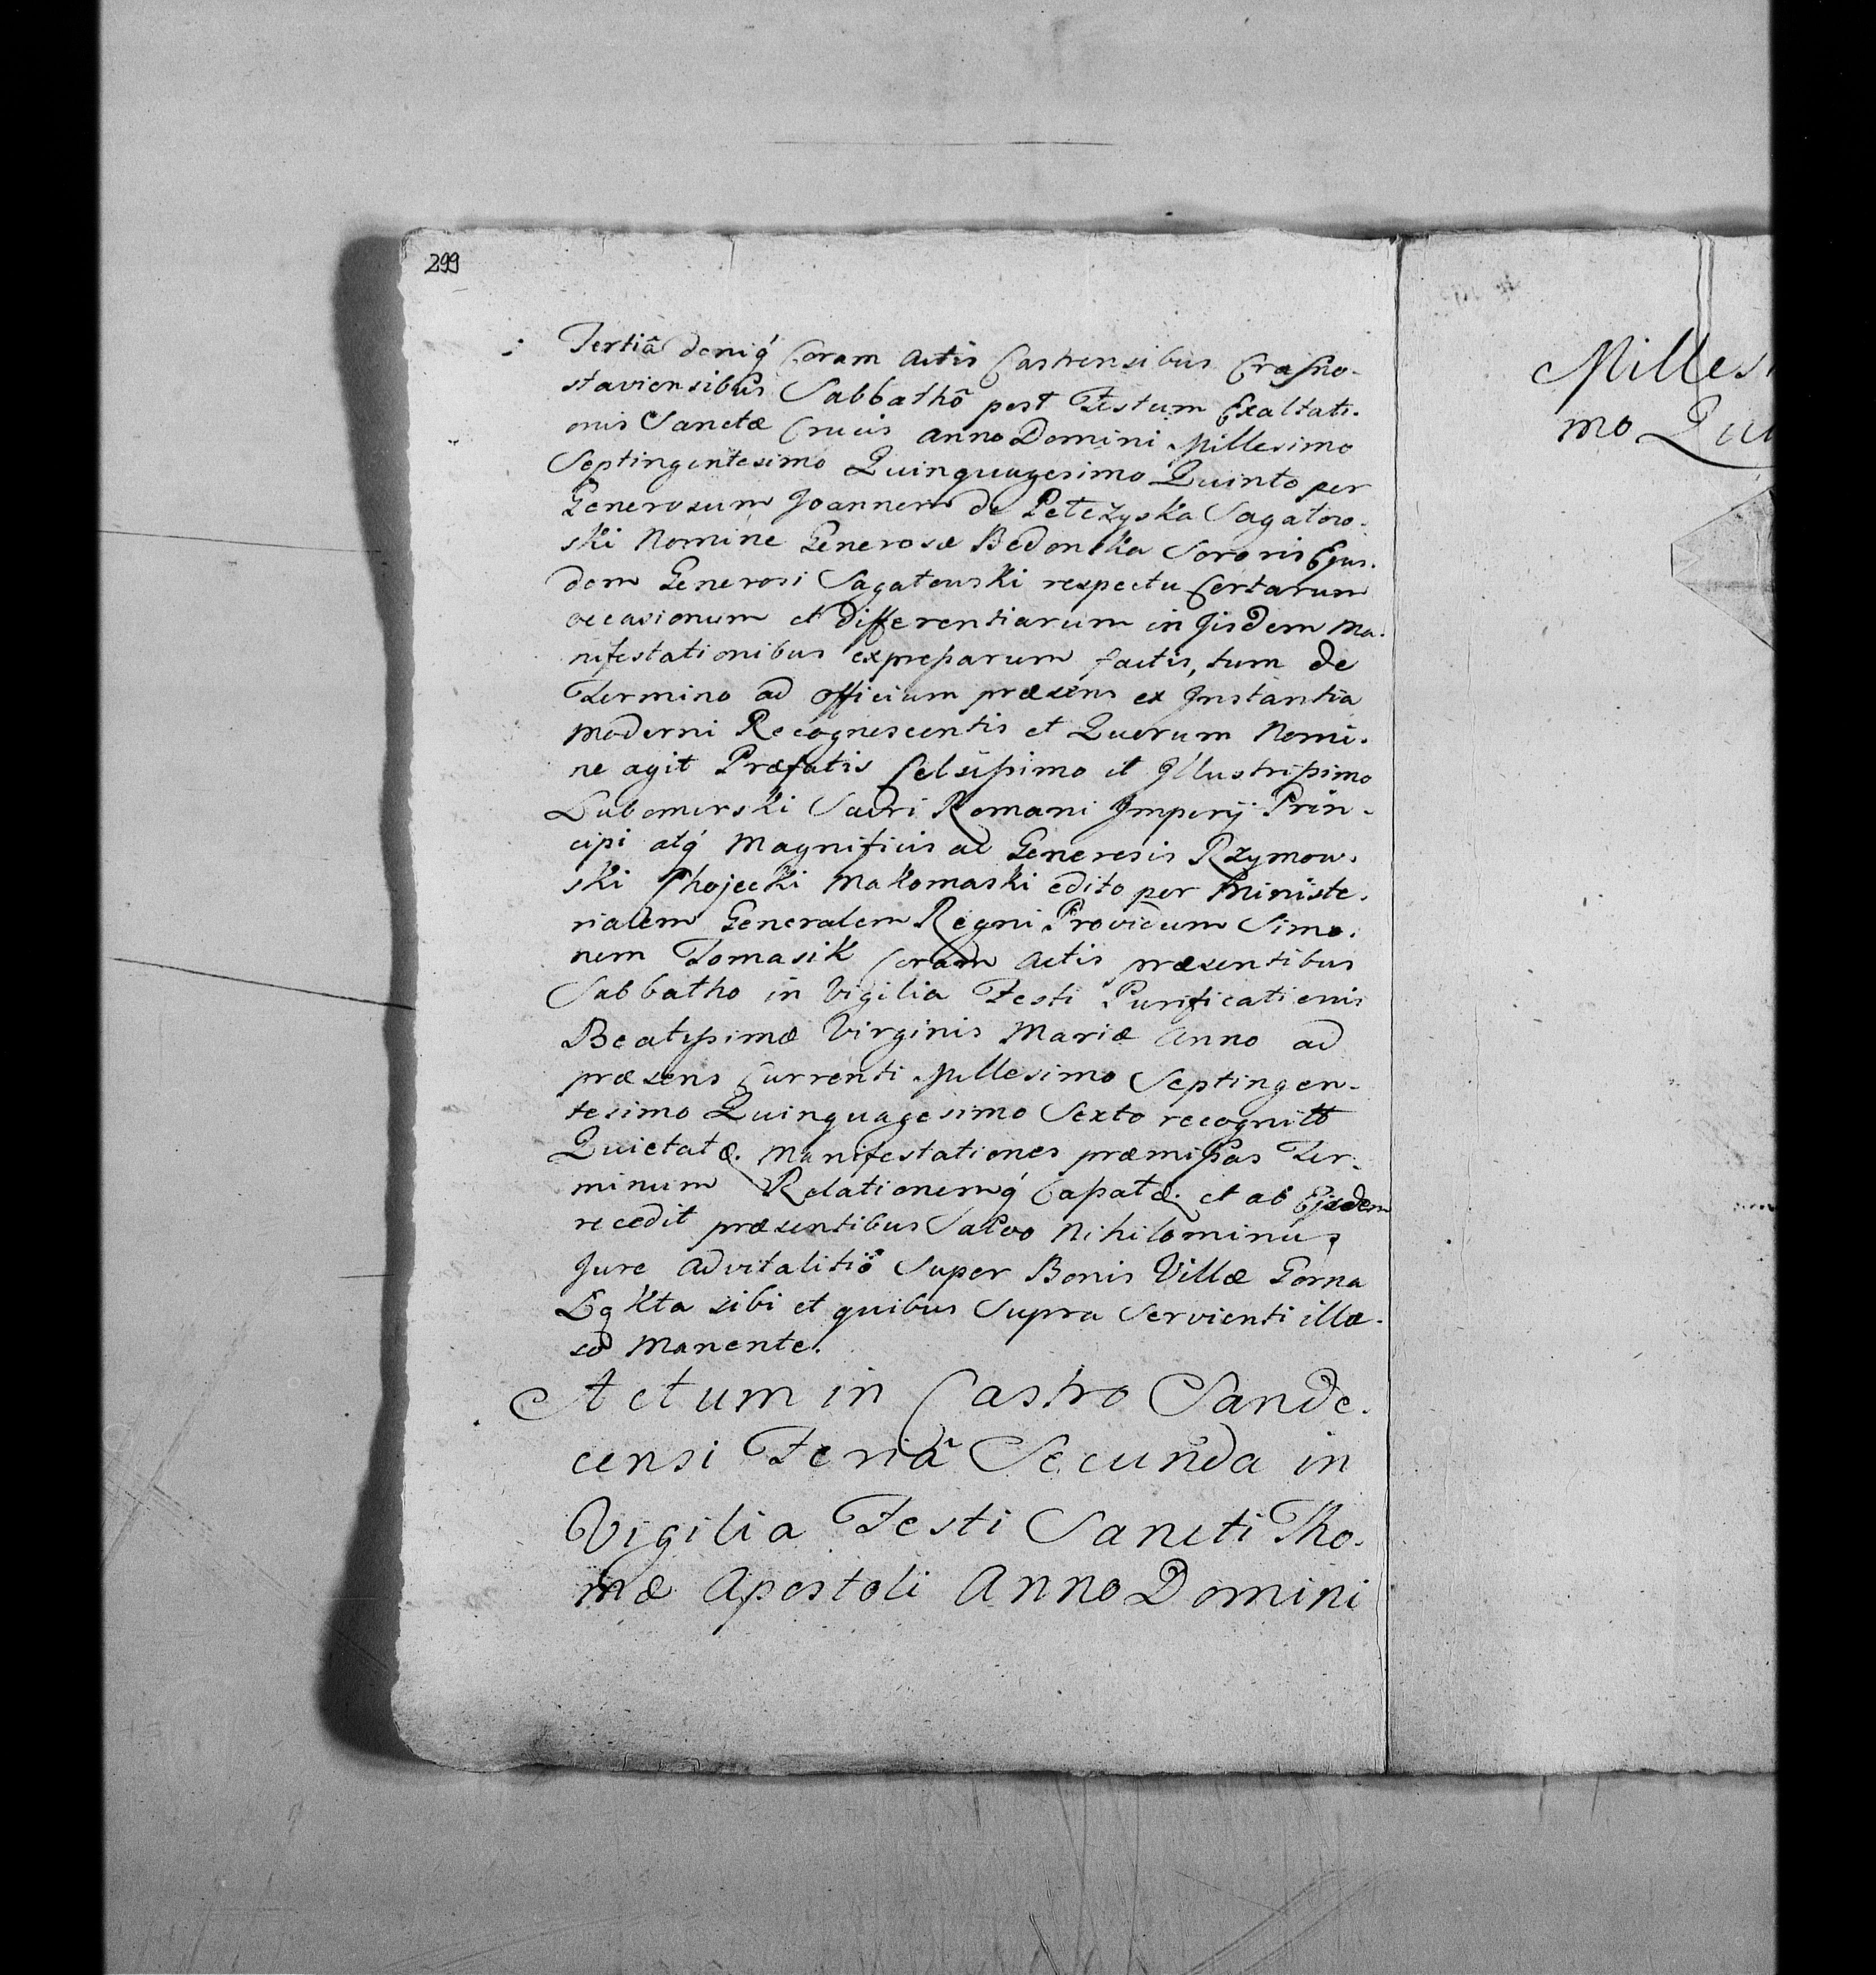 299
Tertiâ deniq́ Coram Actis Castrensibus Crasno-
staviensibus Sabbathô post Festum Exaltati-
onis Sanctæ Crucis Anno Domini Millesimo
Septingentesimo Quinquagesimo Quinto per
Generosum Joannem de Petezyska Sagatow-
ski Nomine Generosæ Bedonska Sororis Ejus-
dem Generosi Sagatowski respectu Certarum
occasionum et differentiarum in Jisdem Ma-
nifestationibus expressarum factis, tum de
Termino ad Officium præsens ex Instantia
Moderni Recognoscentis et Quorum Nomi-
ne agit Præfatis Celsissimo et Illustrissimo
Lubomirski Sacri Romani Imperij Prin-
cipi atq́ Magnificis ac Generosis Rzymow-
ski Chojecki Makomaski edito per Ministe-
rialem Generalem Regni Providum Simo-
nem Tomasik Coram Actis præsentibus
Sabbatho in Vigilia Festi Purificationis
Beatissimæ Virginis Mariæ Anno ad
præsens Currenti Millesimo Septingen-
tesimo Quinquagesimo Sexto recognito
Quietat &. Manifestationes præmissas Ter-
minum Relationemq́ Cassat &. et ab Ejsdem
recedit præsentibus Salvo Nihilominus
Jure Advitalitiô Super Bonis Villæ Gorna
Łąkta sibi et quibus Supra Servienti illæ-
so Manente.
Actum in Castro Sande-
censi Feriâ Secunda in
Vigilia Festi Sancti Tho-
mæ Apostoli Anno Domini
Milles
mo Qui